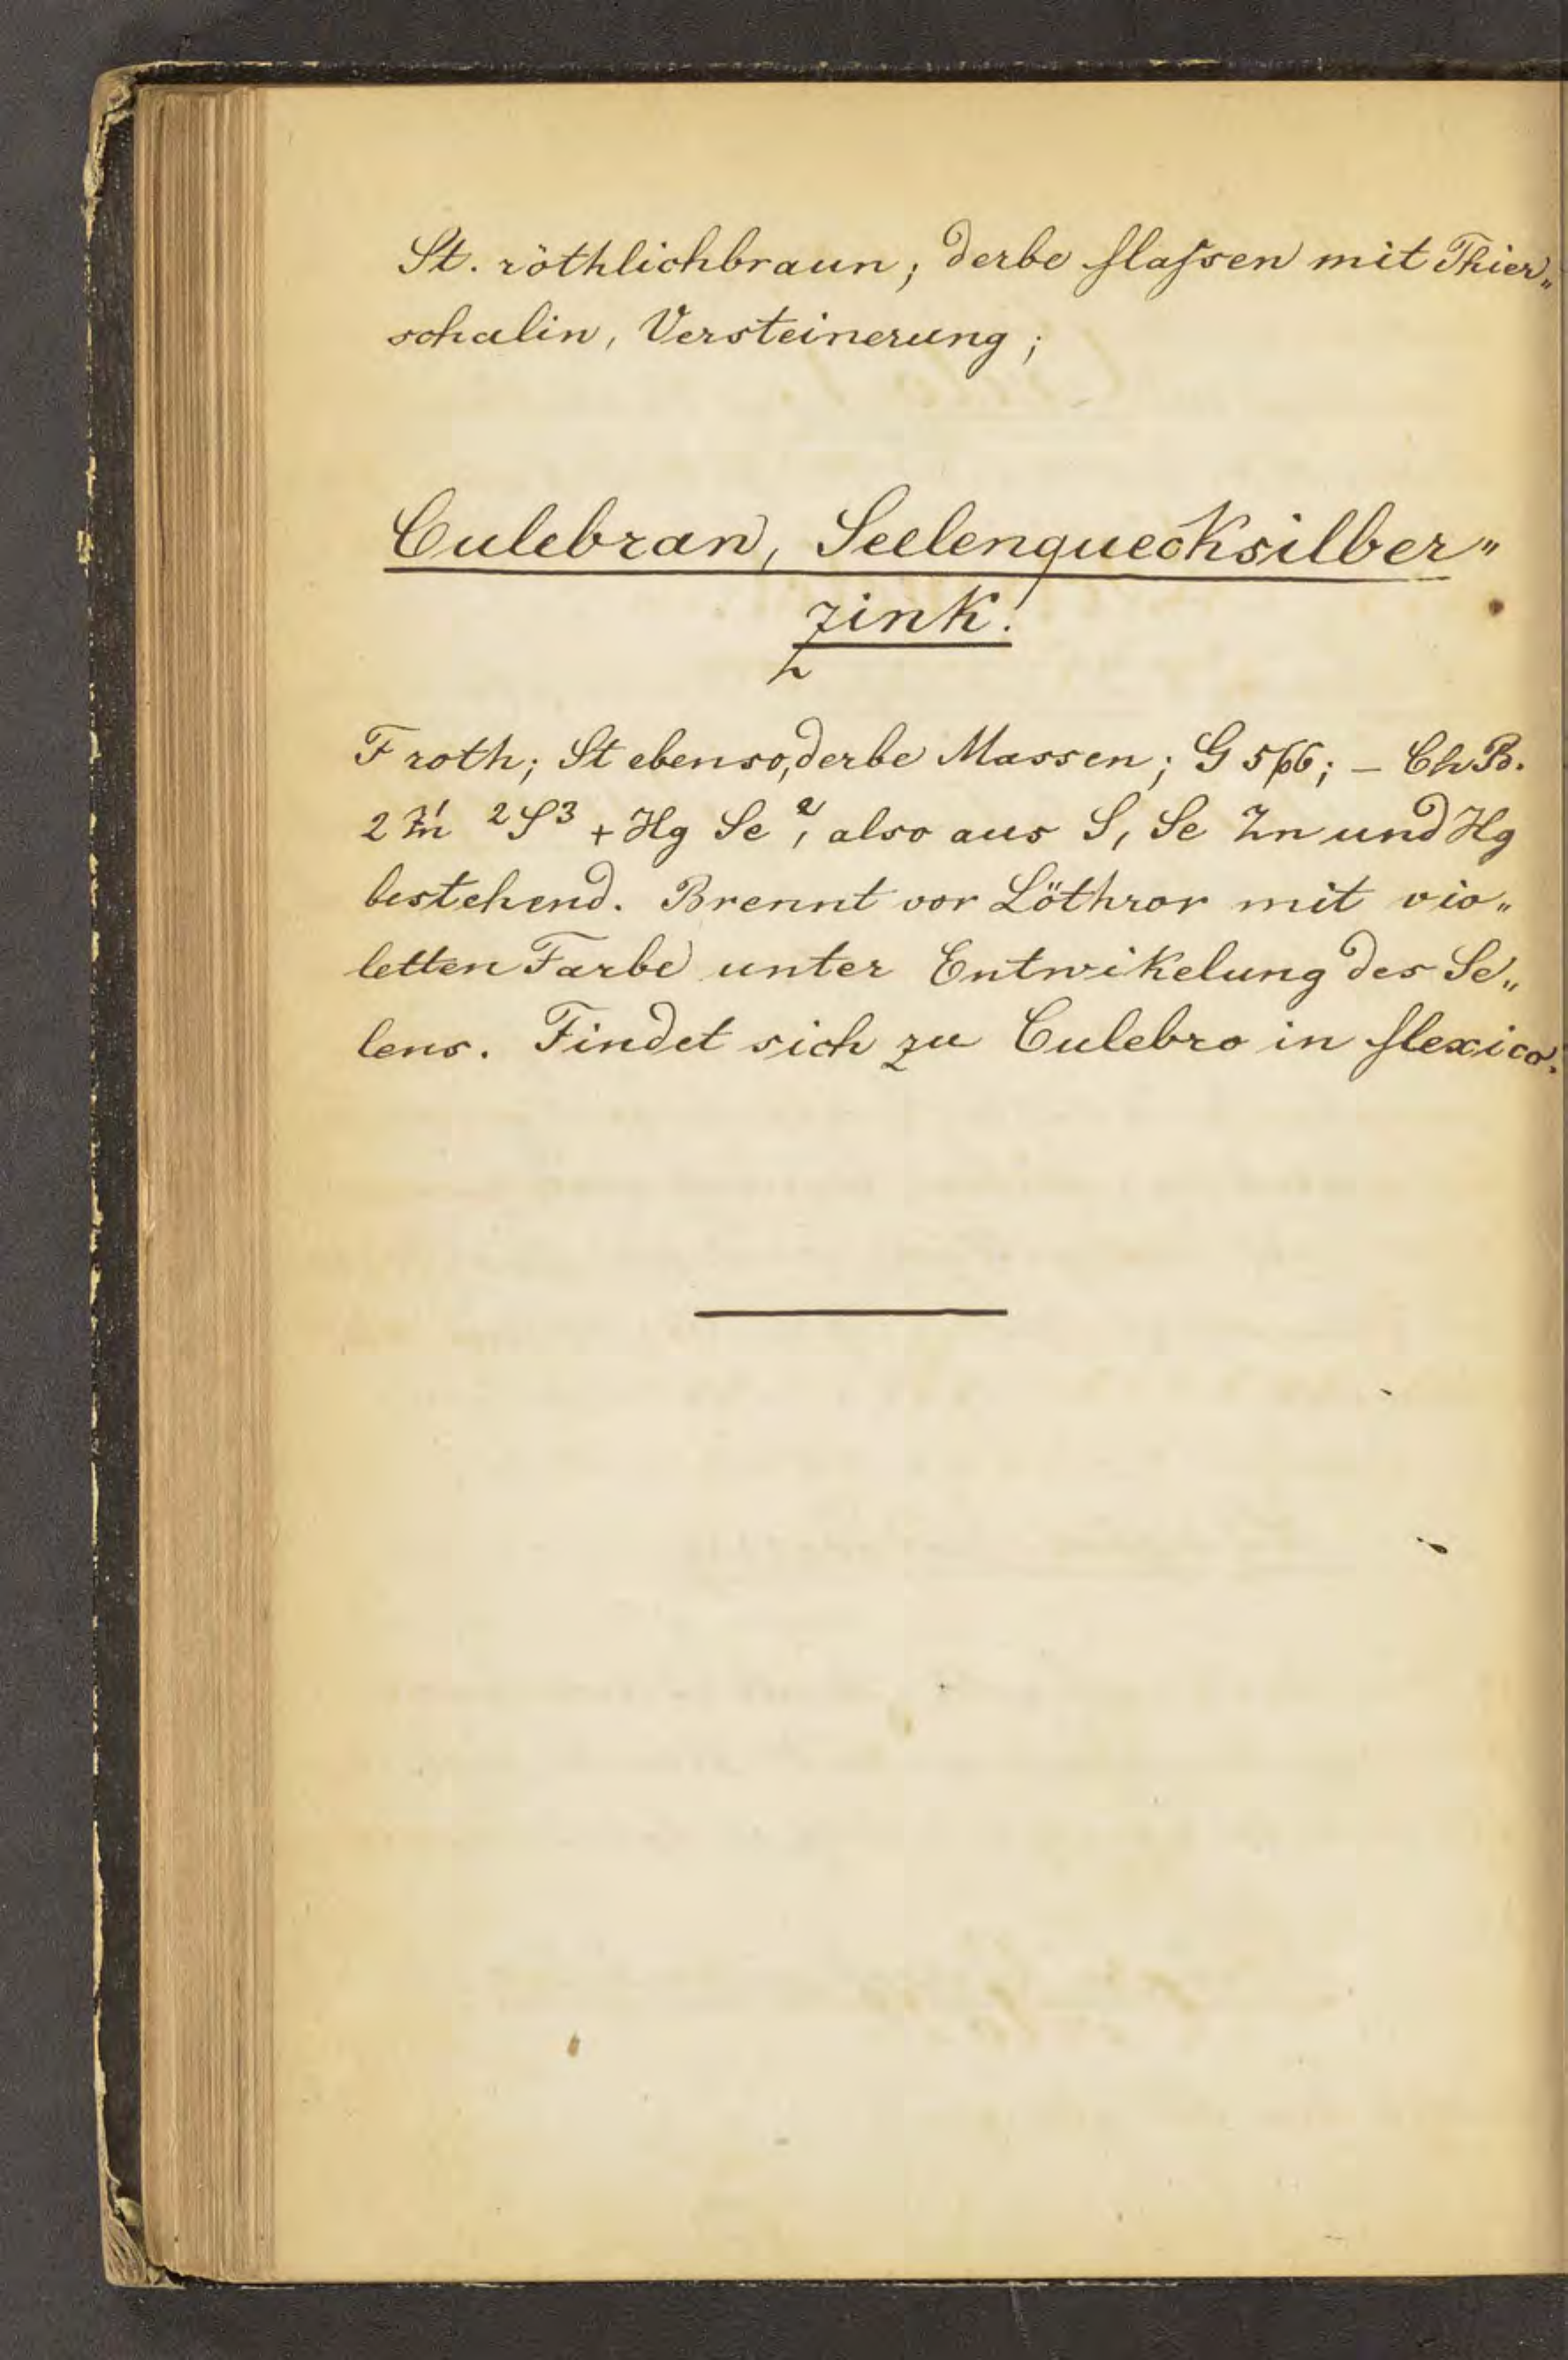 St. röthlichbraun; derbe Massen mit Thier„
schalin, Versteinerung;
Culebran, Seelenquecksilber"
zink.
F roth; St ebenso, derbe Massen; G 5/66; – Ch B.
2 Zn 2S3 + Hg Se2, also aus S, Se Zn und Hg
bestehend. Brennt vor Löthror mit vio„
letten Farbe unter Entwikelung des Se„
lens. Findet sich zu Culebro in Mexico.